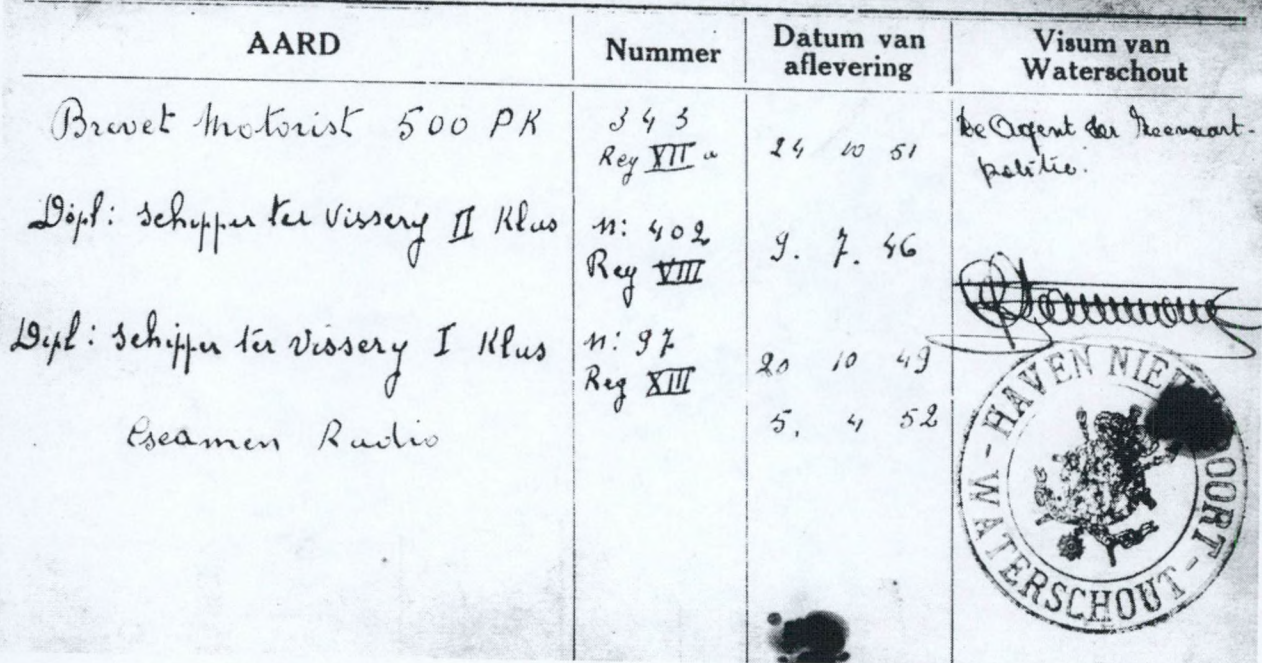 AARD Nummer Datum van aflevering Visum van Waterschout
Brevet Motorist 500 PK 343 24 10 51 De Agent der Zeevaart-
Reg XII a politie.
Dipl: Schipper ter Vissery II Klas n: 402 9. 7. 46
Reg VIII
Dipl: Schipper ter Vissery I Klas n: 97 20 10 49
Reg XIII
Examen Radio 5. 4 52
- HAVEN NIE OORT - WATERSCHOUT